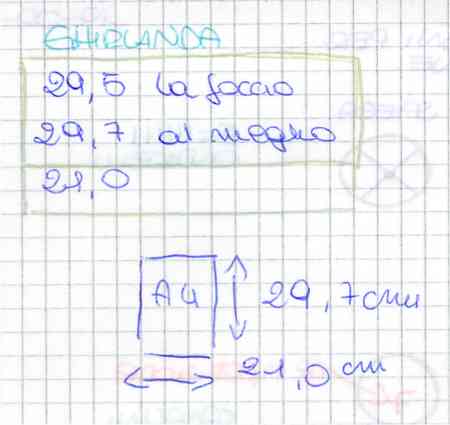 GHIRLANDA
29,5 la faccio
29,7 al meglio
21,0
A4
29,7cm
21,0 cm